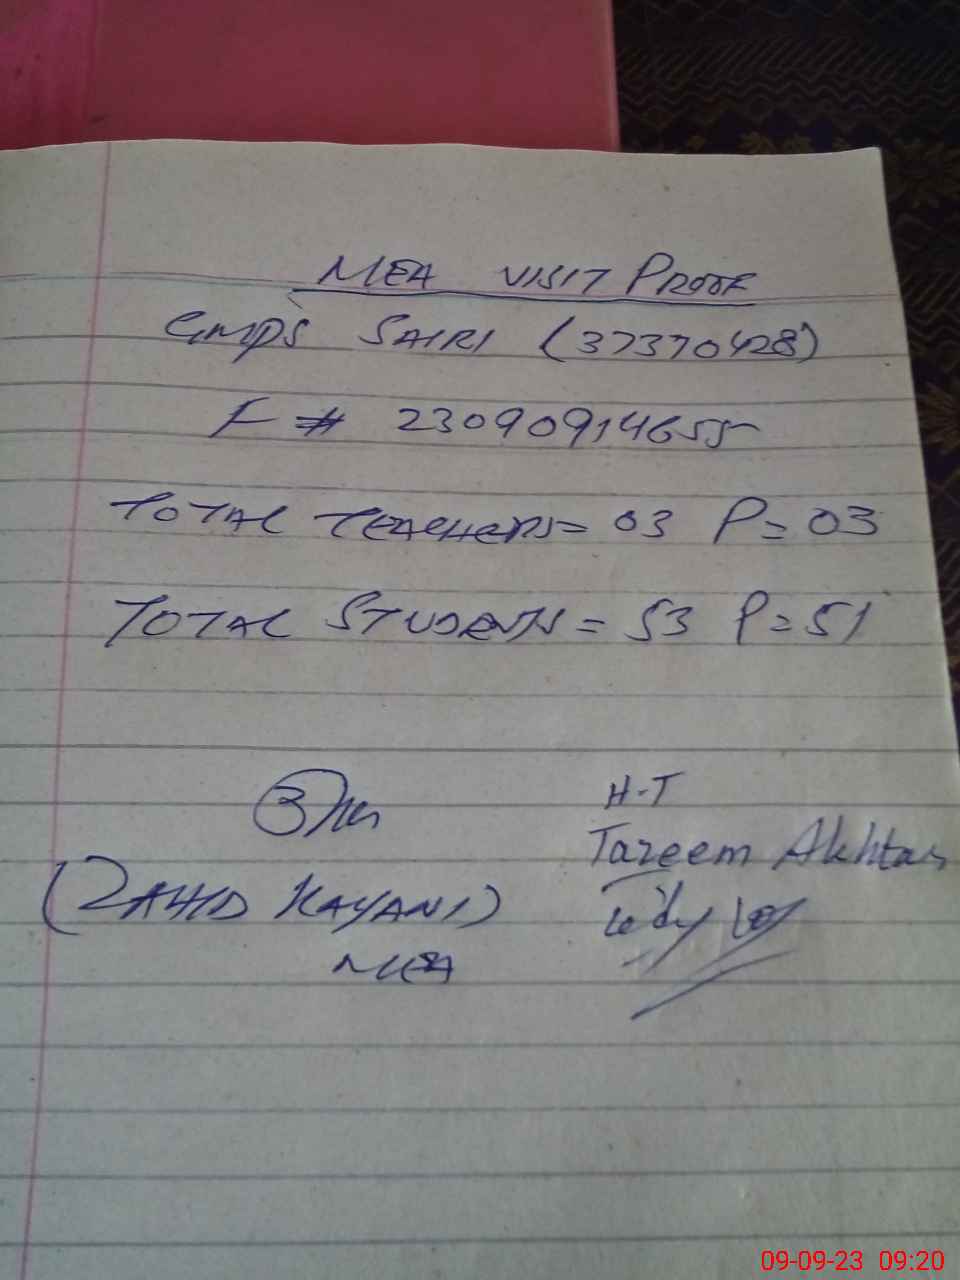 MEA VISIT PROOF
GMPS SAIRI (37370428)
F # 23090914655
TOTAL TEACHERS = 03 P = 03
TOTAL STUDENTS = 53 P = 51
H-T
Tazeem Akhtar
(ZAHID KAYANI)
MEA
09-09-23 09:20